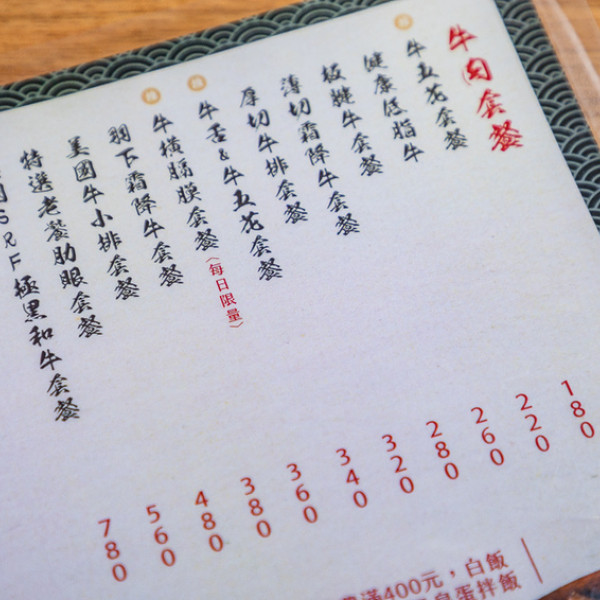 牛肉套餐
牛五花套餐 180
健康低脂牛 220
板腱牛套餐 260
薄切霜降牛套餐 280
厚切牛排套餐 320
牛舌&牛五花套餐 340
牛橫膈膜套餐〈每日限量〉 360
羽下霜降牛套餐 380
美國牛小排套餐 480
特選老饕肋眼套餐 560
國SRF極黑和牛套餐 780
滿400元，白飯
蛋拌飯